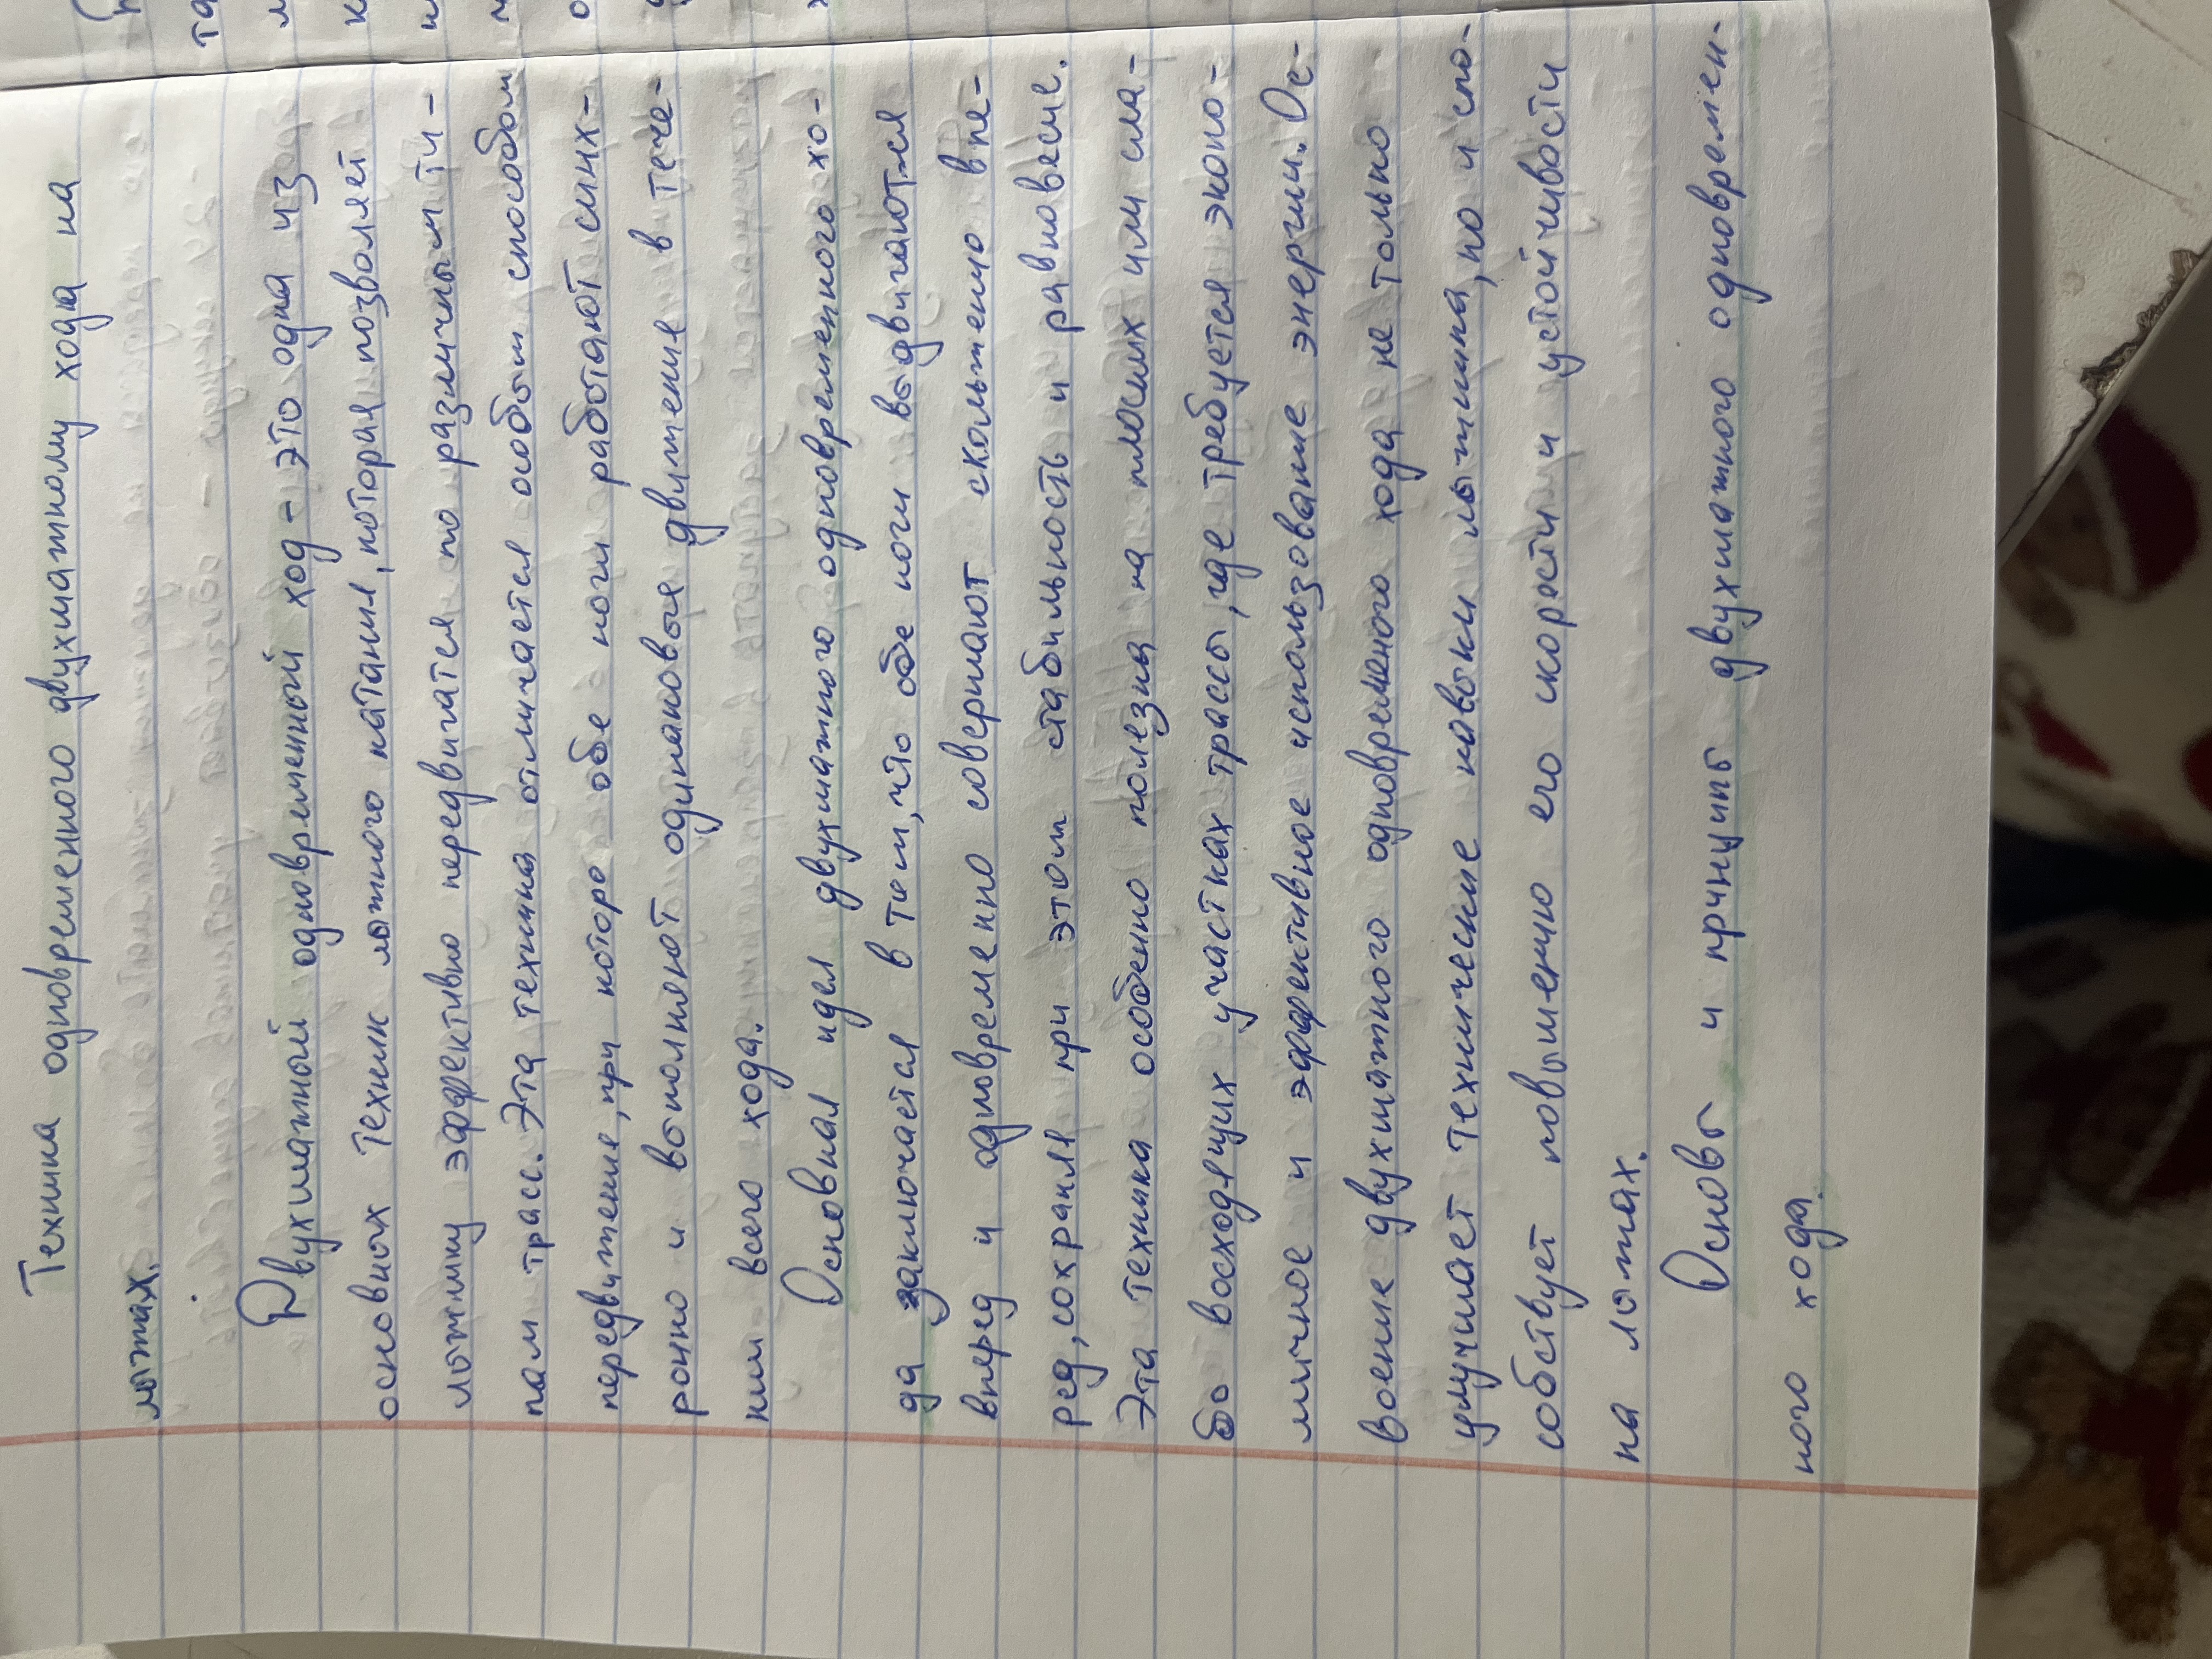 Техника одновременного двухшажному хода на
лыжах.
Двухшажный одновременный ход - это одна из
основных техник лыжного катания, которая позволяет
лыжнику эффективно передвигатся по различным ти-
пам трасс. Эта техника отличается особым способом
передвижение, при которо обе ноги работают синх-
ронно и выполняют одинаковые движение в тече-
нии всего хода.
Основная идея двухшажного одновременного хо-
да заключается в том, что обе ноги выдвигаются
вперед и одновременно совершают скольжению впе-
ред, сохраняя при этом стабильность и равновесие.
Эта техника особенно полезна на плоских или сла-
бо восходящих участках трассы, где требуется эконо-
мичное и эффективное использование энергии. Ос-
воение двухшажного одновременого хода не только
улучшает технические навыки лыжника, но и спо-
собствует повышению его скорости и устойчивости
на лыжах.
Основы и принципы двухшажного одновремен-
ного хода.